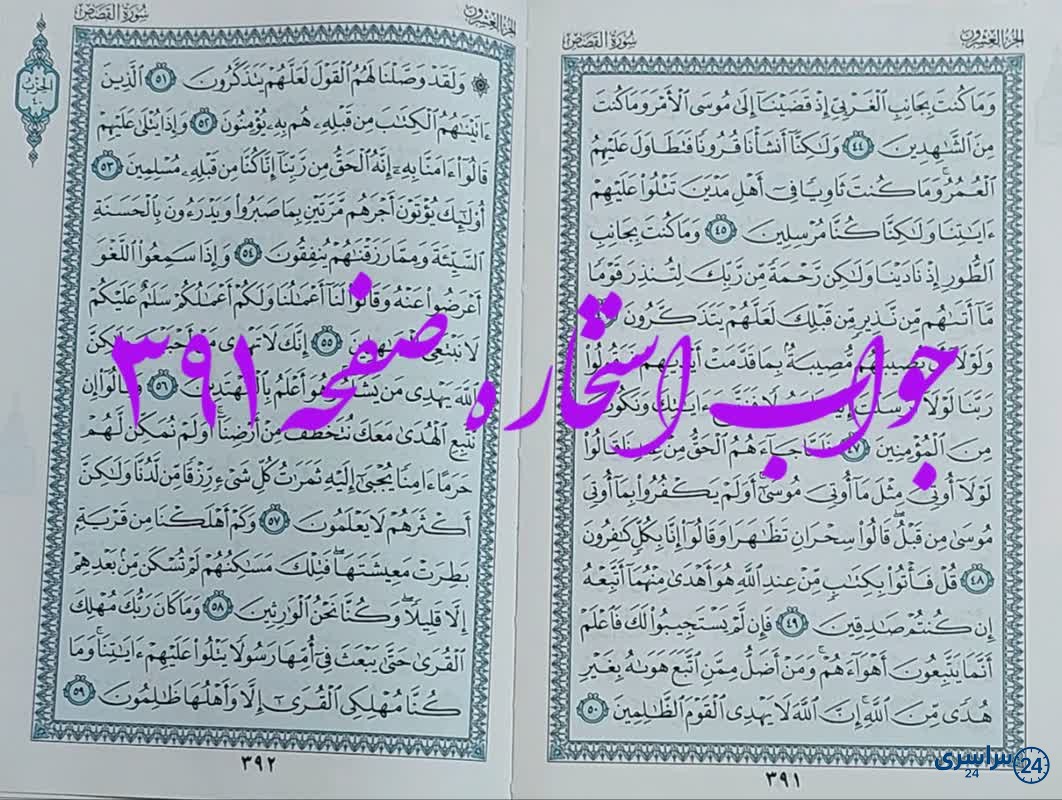 الجزء العشرون
سورة القصص
وَمَا كُنتَ بِجَانِبِ ٱلْغَرْبِيِّ إِذْ قَضَيْنَآ إِلَىٰ مُوسَى ٱلْأَمْرَ وَمَا كُنتَ
مِنَ ٱلشَّـٰهِدِينَ ٤٤ وَلَـٰكِنَّآ أَنشَأْنَا قُرُونًا فَتَطَاوَلَ عَلَيْهِمُ
ٱلْعُمُرُ ۚ وَمَا كُنتَ ثَاوِيًا فِىٓ أَهْلِ مَدْيَنَ تَتْلُوا۟ عَلَيْهِمْ
ءَايَـٰتِنَا وَلَـٰكِنَّا كُنَّا مُرْسِلِينَ ٤٥ وَمَا كُنتَ بِجَانِبِ
ٱلطُّورِ إِذْ نَادَيْنَا وَلَـٰكِن رَّحْمَةً مِّن رَّبِّكَ لِتُنذِرَ قَوْمًا
مَّآ أَتَىٰهُم مِّن نَّذِيرٍ مِّن قَبْلِكَ لَعَلَّهُمْ يَتَذَكَّرُونَ
وَلَوْلَآ أَن تُصِيبَهُم مُّصِيبَةٌۢ بِمَا قَدَّمَتْ أَيْدِيهِمْ فَيَقُولُوا۟
رَبَّنَا لَوْلَآ أَرْسَلْتَ إِلَيْنَا رَسُولًا فَنَتَّبِعَ ءَايَـٰتِكَ وَنَكُونَ
مِنَ ٱلْمُؤْمِنِينَ ٤٧ فَلَمَّا جَآءَهُمُ ٱلْحَقُّ مِنْ عِندِنَا قَالُوا۟
لَوْلَآ أُوتِىَ مِثْلَ مَآ أُوتِىَ مُوسَىٰٓ ۚ أَوَلَمْ يَكْفُرُوا۟ بِمَآ أُوتِىَ
مُوسَىٰ مِن قَبْلُ ۖ قَالُوا۟ سِحْرَانِ تَظَـٰهَرَا وَقَالُوٓا۟ إِنَّا بِكُلٍّ كَـٰفِرُونَ
٤٨ قُلْ فَأْتُوا۟ بِكِتَـٰبٍ مِّنْ عِندِ ٱللَّهِ هُوَ أَهْدَىٰ مِنْهُمَآ أَتَّبِعْهُ
إِن كُنتُمْ صَـٰدِقِينَ ٤٩ فَإِن لَّمْ يَسْتَجِيبُوا۟ لَكَ فَٱعْلَمْ
أَنَّمَا يَتَّبِعُونَ أَهْوَآءَهُمْ ۚ وَمَنْ أَضَلُّ مِمَّنِ ٱتَّبَعَ هَوَىٰهُ بِغَيْرِ
هُدًى مِّنَ ٱللَّهِ ۚ إِنَّ ٱللَّهَ لَا يَهْدِى ٱلْقَوْمَ ٱلظَّـٰلِمِينَ ٥٠
٣٩١
الجزء العشرون
سورة القصص
الحزب ٤٠
۞ وَلَقَدْ وَصَّلْنَا لَهُمُ ٱلْقَوْلَ لَعَلَّهُمْ يَتَذَكَّرُونَ ٥١ ٱلَّذِينَ
ءَاتَيْنَـٰهُمُ ٱلْكِتَـٰبَ مِن قَبْلِهِۦ هُم بِهِۦ يُؤْمِنُونَ ٥٢ وَإِذَا يُتْلَىٰ عَلَيْهِمْ
قَالُوٓا۟ ءَامَنَّا بِهِۦٓ إِنَّهُ ٱلْحَقُّ مِن رَّبِّنَآ إِنَّا كُنَّا مِن قَبْلِهِۦ مُسْلِمِينَ ٥٣
أُو۟لَـٰٓئِكَ يُؤْتَوْنَ أَجْرَهُم مَّرَّتَيْنِ بِمَا صَبَرُوا۟ وَيَدْرَءُونَ بِٱلْحَسَنَةِ
ٱلسَّيِّئَةَ وَمِمَّا رَزَقْنَـٰهُمْ يُنفِقُونَ ٥٤ وَإِذَا سَمِعُوا۟ ٱللَّغْوَ
أَعْرَضُوا۟ عَنْهُ وَقَالُوا۟ لَنَآ أَعْمَـٰلُنَا وَلَكُمْ أَعْمَـٰلُكُمْ سَلَـٰمٌ عَلَيْكُمْ
لَا نَبْتَغِى ٱلْجَـٰهِلِينَ ٥٥ إِنَّكَ لَا تَهْدِى مَنْ أَحْبَبْتَ وَلَـٰكِنَّ
ٱللَّهَ يَهْدِى مَن يَشَآءُ ۚ وَهُوَ أَعْلَمُ بِٱلْمُهْتَدِينَ ٥٦ وَقَالُوٓا۟ إِن
نَّتَّبِعِ ٱلْهُدَىٰ مَعَكَ نُتَخَطَّفْ مِنْ أَرْضِنَآ ۚ أَوَلَمْ نُمَكِّن لَّهُمْ
حَرَمًا ءَامِنًا يُجْبَىٰٓ إِلَيْهِ ثَمَرَٰتُ كُلِّ شَىْءٍ رِّزْقًا مِّن لَّدُنَّا وَلَـٰكِنَّ
أَكْثَرَهُمْ لَا يَعْلَمُونَ ٥٧ وَكَمْ أَهْلَكْنَا مِن قَرْيَةٍۭ
بَطِرَتْ مَعِيشَتَهَا ۖ فَتِلْكَ مَسَـٰكِنُهُمْ لَمْ تُسْكَن مِّنۢ بَعْدِهِمْ
إِلَّا قَلِيلًا ۖ وَكُنَّا نَحْنُ ٱلْوَٰرِثِينَ ٥٨ وَمَا كَانَ رَبُّكَ مُهْلِكَ
ٱلْقُرَىٰ حَتَّىٰ يَبْعَثَ فِىٓ أُمِّهَا رَسُولًا يَتْلُوا۟ عَلَيْهِمْ ءَايَـٰتِنَا ۚ وَمَا
كُنَّا مُهْلِكِى ٱلْقُرَىٰٓ إِلَّا وَأَهْلُهَا ظَـٰلِمُونَ ٥٩
٣٩٢
جواب استخاره صفحه ۳۹۱
سراسری
24
24